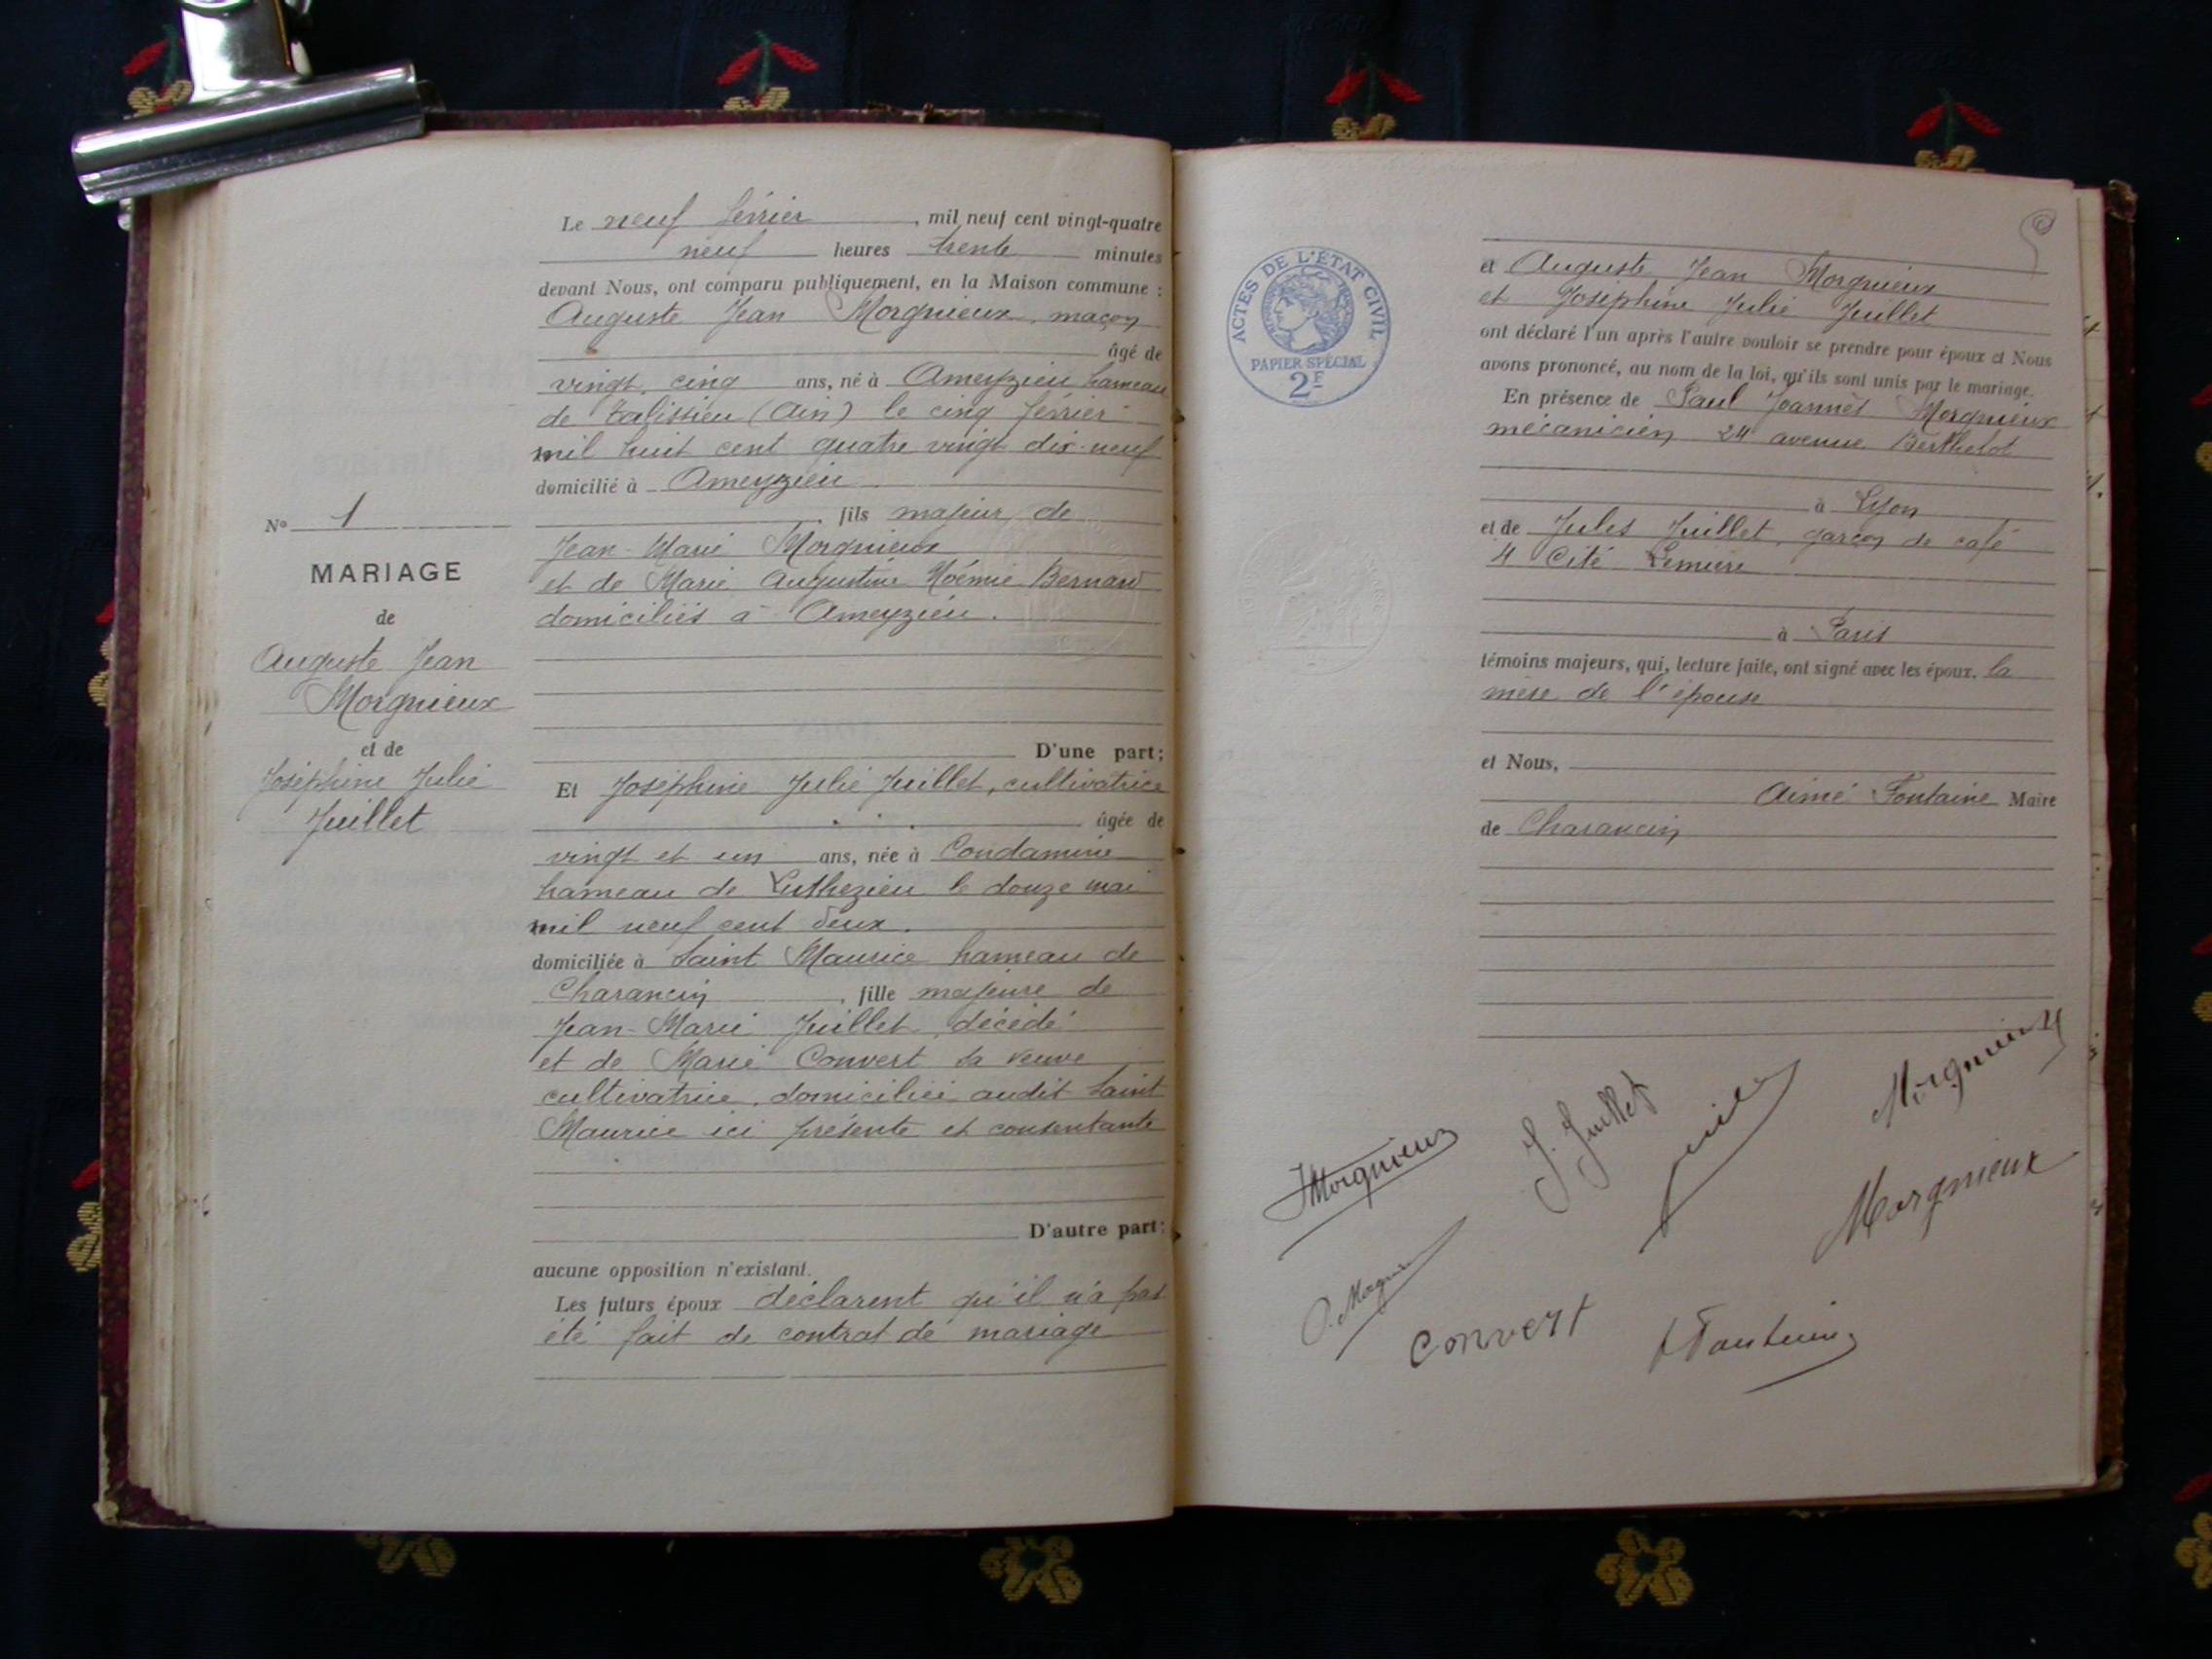 Le neuf février, mil neuf cent vingt-quatre
neuf heures trente minutes
devant Nous, ont comparu publiquement, en la Maison commune :
Auguste Jean Morgnieux, maçon
âgé de
vingt cinq ans, né à Ameyzieu hameau
de Talissieu (Ain) le cinq février
mil huit cent quatre vingt dix-neuf
domicilié à Ameyzieu
fils majeur de
Jean-Marie Morgnieux
et de Marie Augustine Noémie Bernard
domiciliés à Ameyzieu.
D'une part;
N° 1
MARIAGE
de
Auguste Jean
Morgnieux
et de
Joséphine Julie
Juillet
Et Joséphine Julie Juillet, cultivatrice
âgée de
vingt et un ans, née à Condamine
hameau de Luthezieu le douze mai
mil neuf cent deux.
domiciliée à Saint Maurice hameau de
Charancin, fille majeure de
Jean-Marie Juillet, décédé
et de Marie Convert sa veuve
cultivatrice, domiciliée audit Saint
Maurice ici présente et consentante
D'autre part:
aucune opposition n'existant.
Les futurs époux déclarent qu'il n'a pas
été fait de contrat de mariage
ACTES DE L'ÉTAT CIVIL
PAPIER SPÉCIAL
2F
et Auguste Jean Morgnieux
et Joséphine Julie Juillet
ont déclaré l'un après l'autre vouloir se prendre pour époux et Nous
avons prononcé, au nom de la loi, qu'ils sont unis par le mariage.
En présence de Paul Joannès Morgnieux
mécanicien 24 avenue Berthelot
à Lyon
et de Jules Juillet, garçon de café
4 Cité Lemière
à Paris
témoins majeurs, qui, lecture faite, ont signé avec les époux, la
mère de l'épouse
et Nous,
Aimé Fontaine Maire
de Charancin
Morgnieux
JMorgnieux
J. Juillet
Morgnieux
P. Morgnieux
Convert
AFontaine